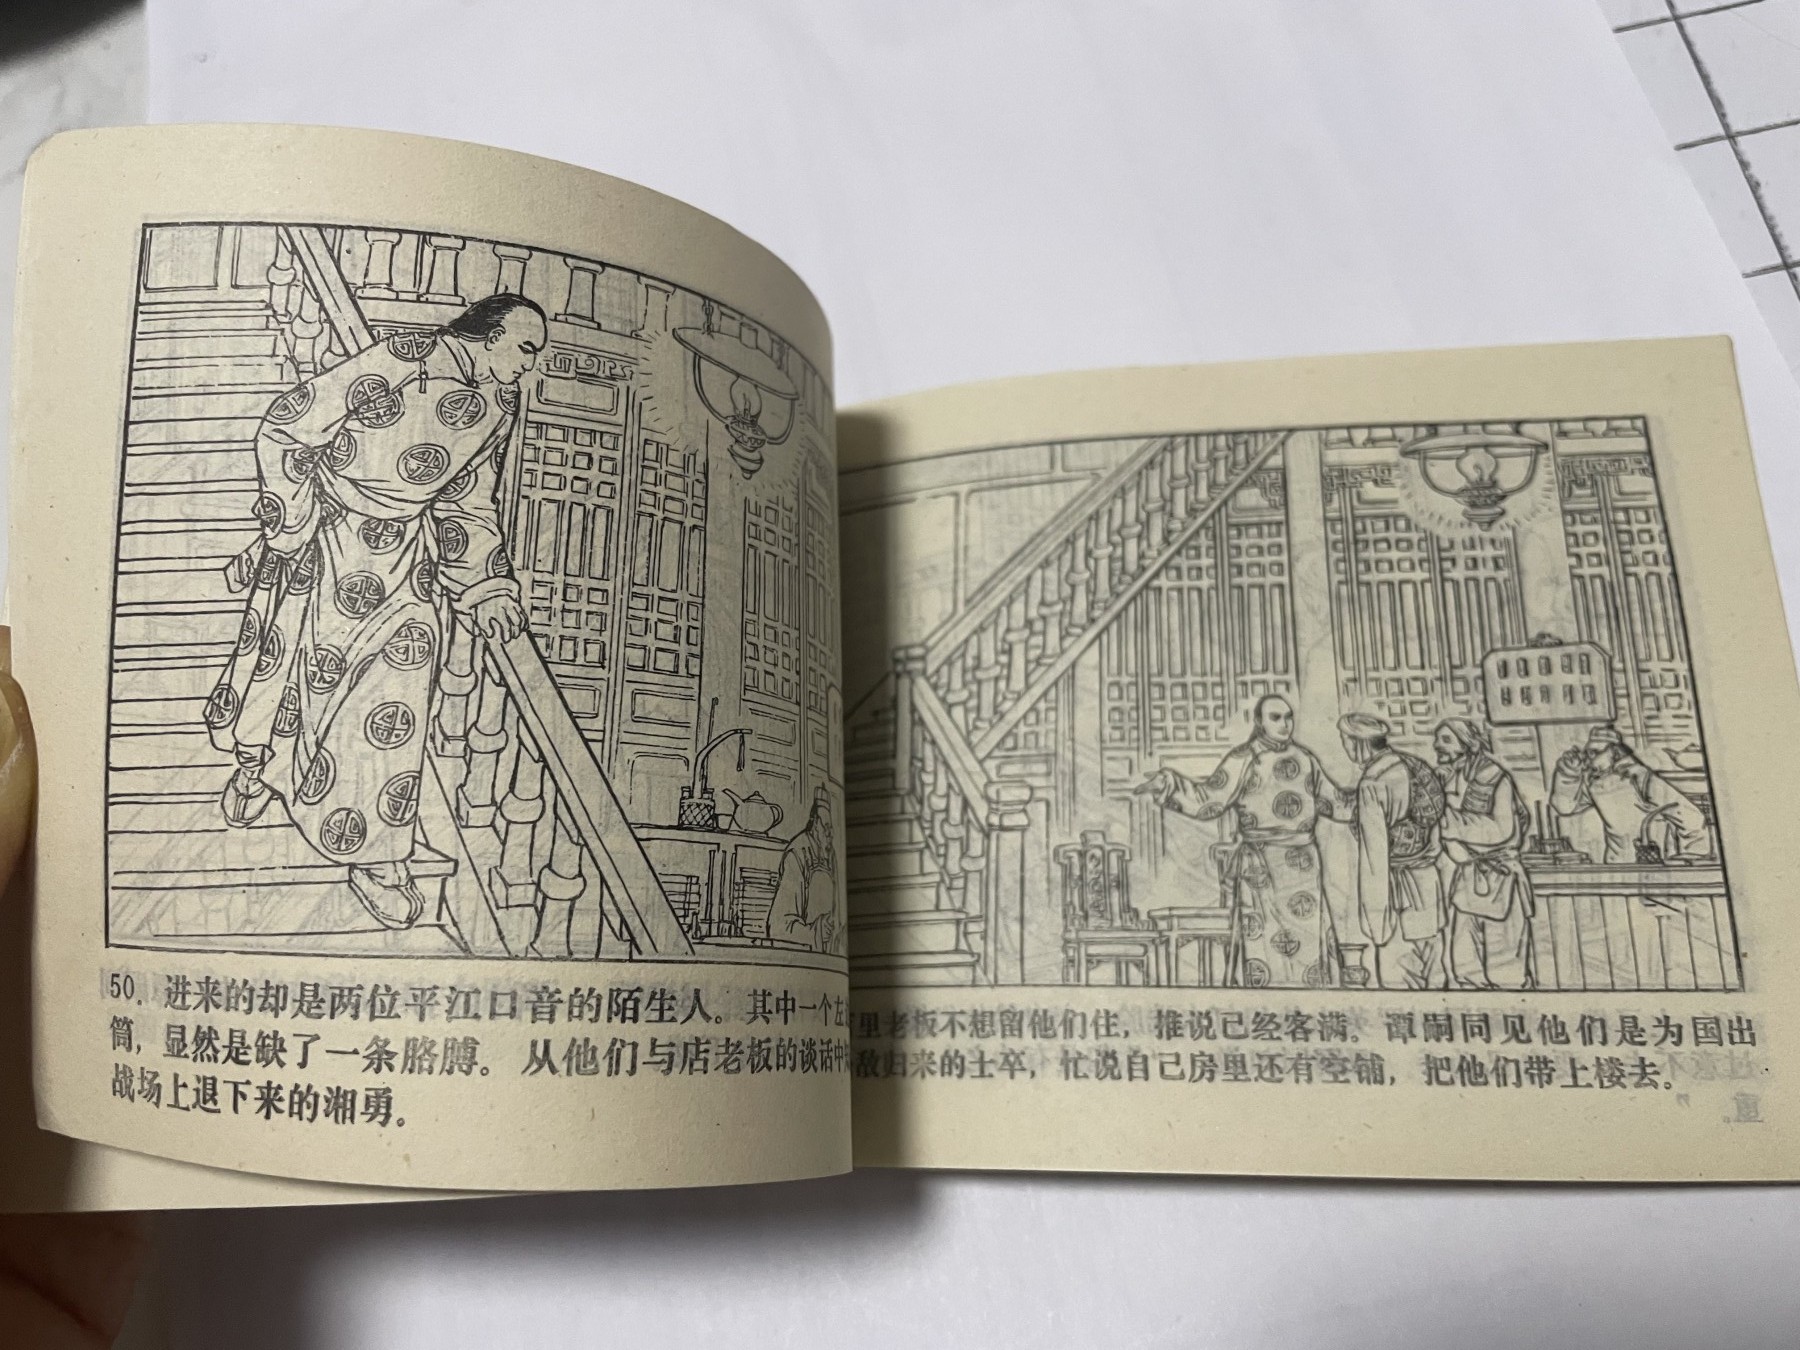 50. 进来的却是两位平江口音的陌生人。其中一个左
筒，显然是缺了一条胳膊。从他们与店老板的谈话中
战场上退下来的湘勇。
里老板不想留他们住，推说已经客满。谭嗣同见他们是为国出
敌归来的士卒，忙说自己房里还有空铺，把他们带上楼去。